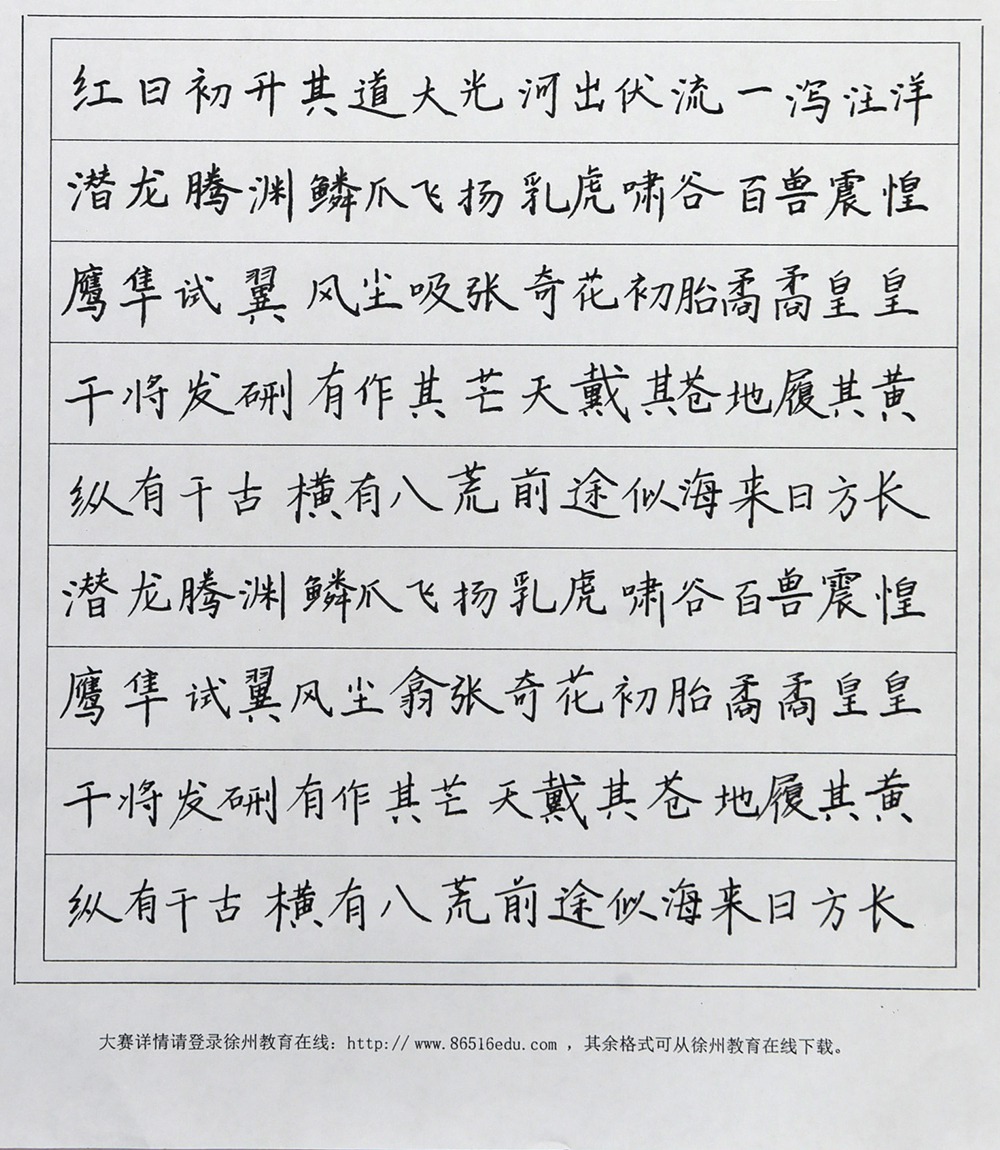 红日初升其道大光河出伏流一泻汪洋
潜龙腾渊鳞爪飞扬乳虎啸谷百兽震惶
鹰隼试翼风尘吸张奇花初胎矞矞皇皇
干将发硎有作其芒天戴其苍地履其黄
纵有千古横有八荒前途似海来日方长
潜龙腾渊鳞爪飞扬乳虎啸谷百兽震惶
鹰隼试翼风尘翕张奇花初胎矞矞皇皇
干将发硎有作其芒天戴其苍地履其黄
纵有千古横有八荒前途似海来日方长
大赛详情请登录徐州教育在线：http://www.86516edu.com，其余格式可从徐州教育在线下载。